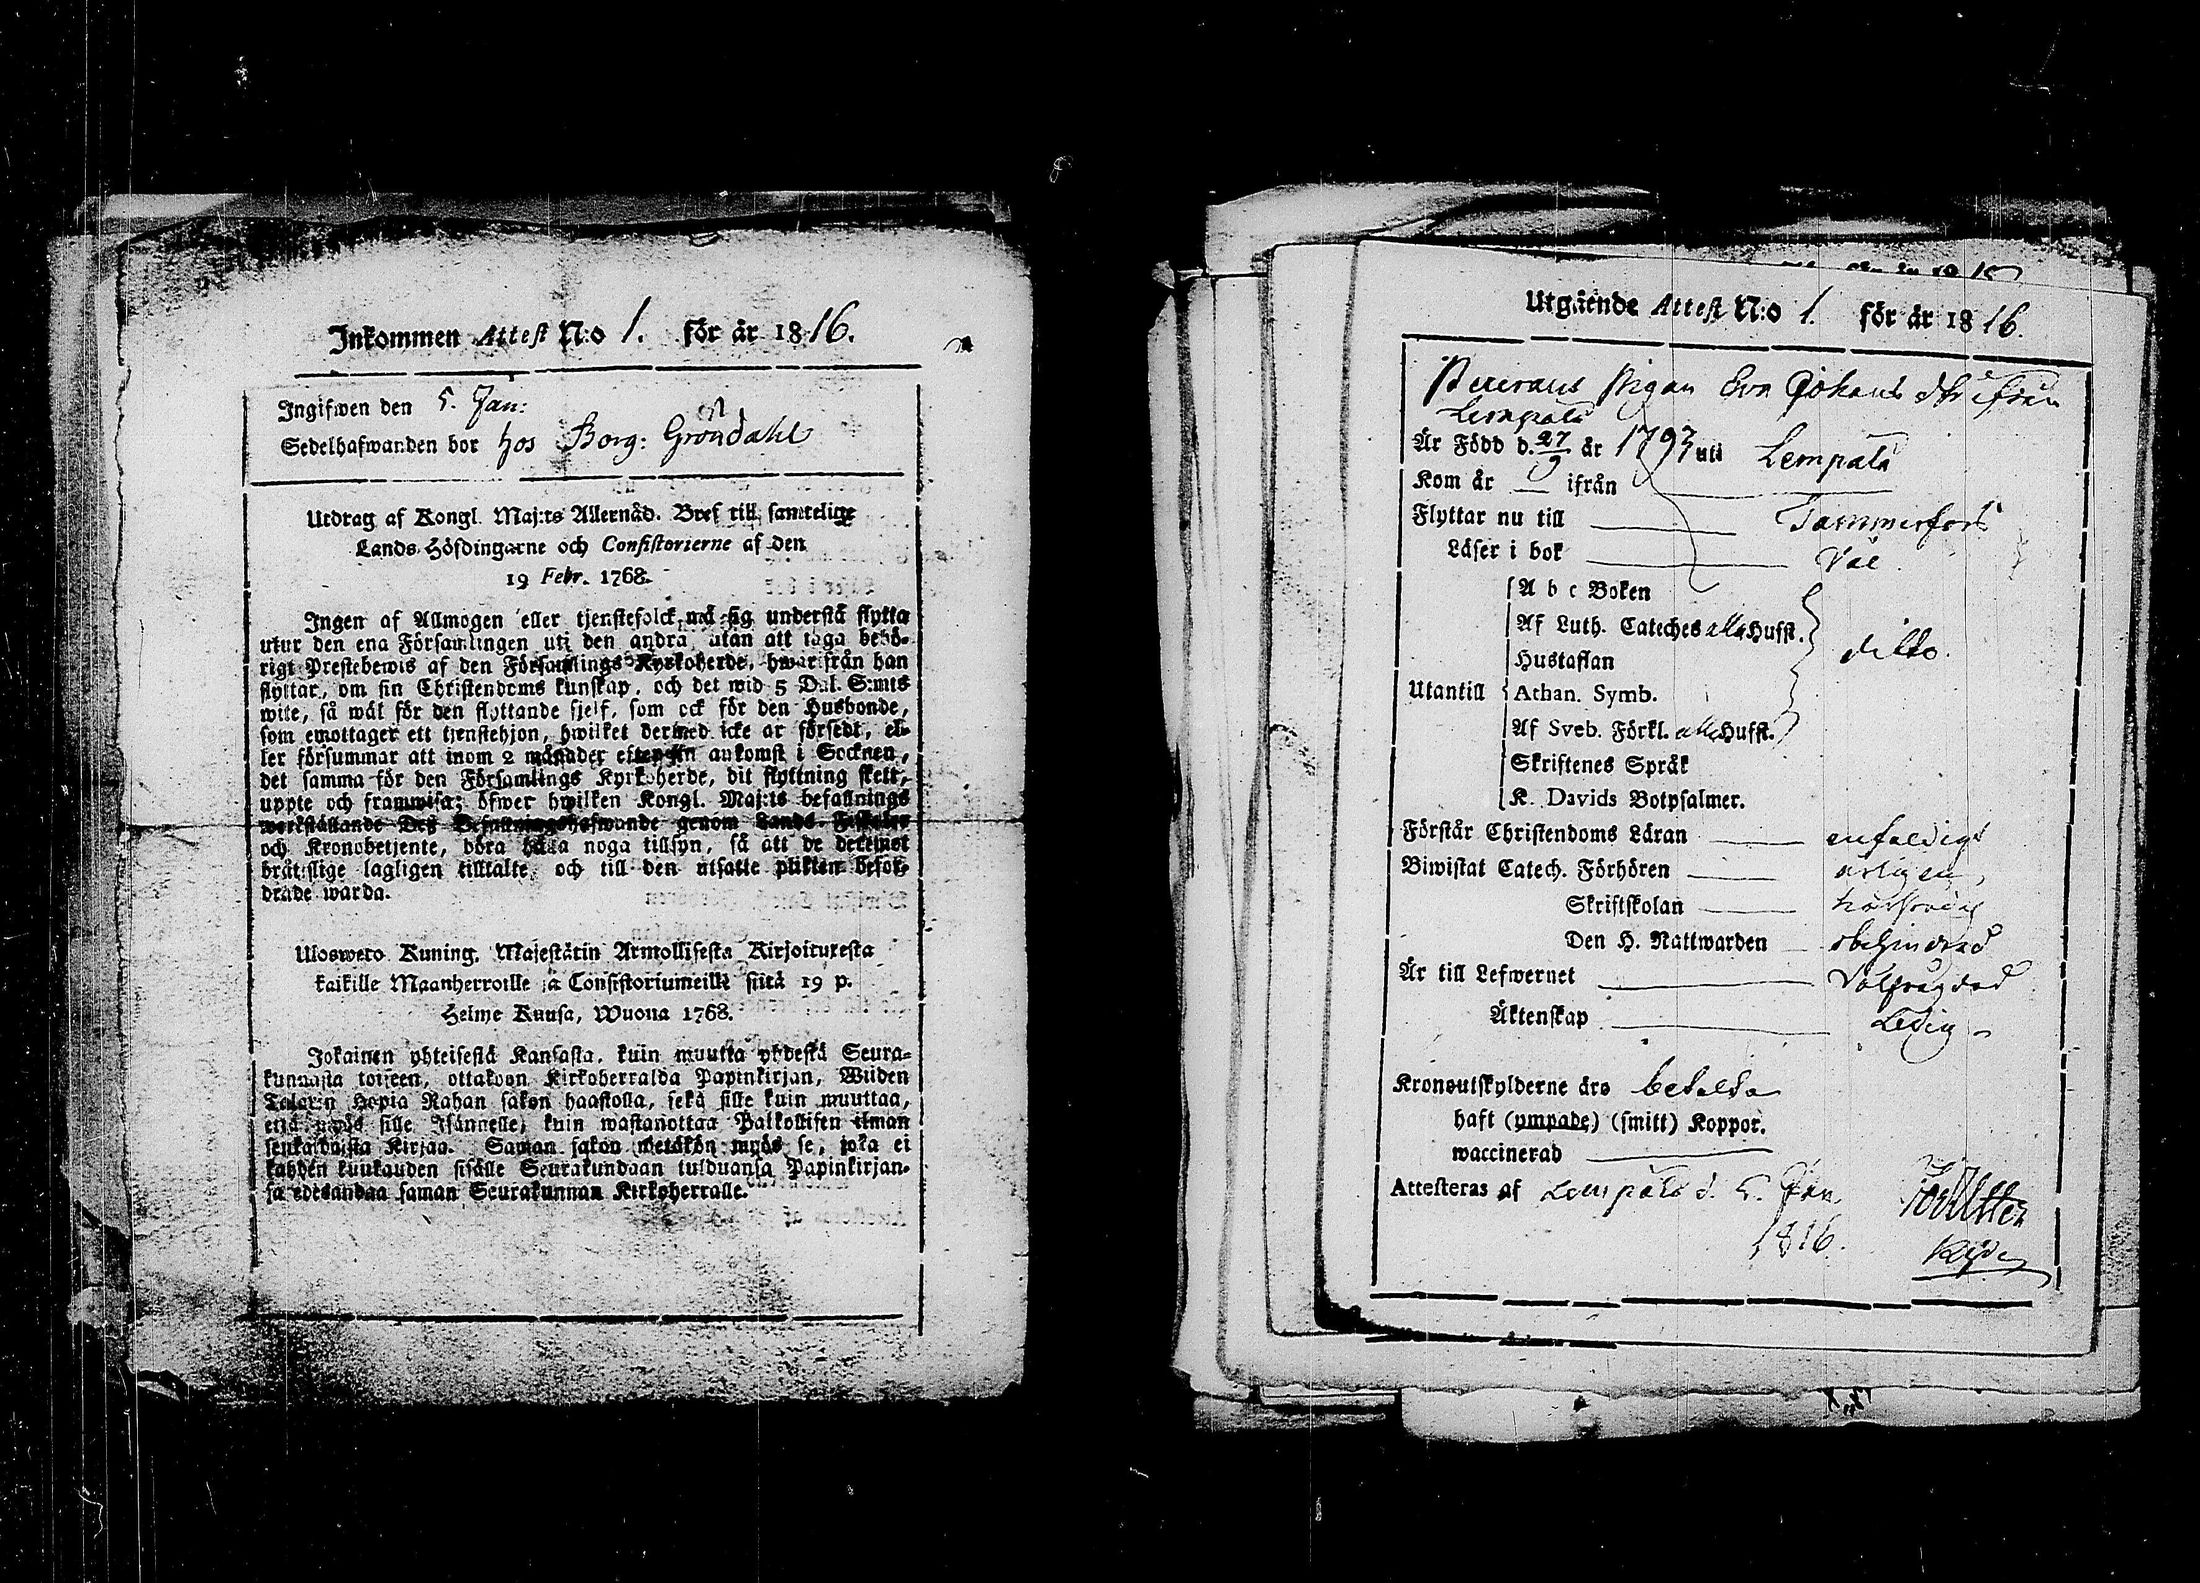 Inkommen Attest N:o 1. för år 1816.
Ingifwen den 5. Jan:
Sedelhafwanden bor hos Borg: Gröndahl
Utdrag af Kongl. Maj:ts Allernåd. Bref till samtelige
Lands-Höfdingarne och Consistorierne af den
19 Febr. 1768.
Ingen af Allmogen eller tjenstefolck må sig understå flytta
utur den ena Församlingen uti den andra utan att taga behö-
rigt Prestebewis af den Församlings Kyrkoherde, hwarifrån han
flyttar, om sin Christendoms kunskap, och det wid 5 Dal. S:mts
wite, så wäl för den flyttande sjelf, som ock för den Husbonde,
som emottager ett tjenstehjon, hwilket dermed icke är försedt, el-
ler försummar att inom 2 månader efter sin ankomst i Socknen,
det samma för den Församlings Kyrkoherde, dit flyttning skett,
uppte och framwisa; öfwer hwilken Kongl. Maj:ts befallnings
werkställande Des Befallningshafwande genom Lands-Fiskaler
och Kronobetjente, böra hålla noga tillsyn, så att de deremot
bråtslige lagligen tilltalte, och till den utsatte plikten befor-
drade warda.
Uloswero Kuning. Majestätin Armollisesta Kirjoituxesta
kaikille Maanherroille ja Consistoriumeille siitä 19 p.
Helme Kuusa, Wuona 1768.
Jokainen yhteisestä Kansasta, kuin muutta yhdestä Seura-
kunnasta toiseen, ottakoon Kirkoherralda Papinkirjan, Wiiden
Talarin Hopia Rahan sakon haastolla, sekä sille kuin muuttaa,
että myös sille Isännelle, kuin wastanottaa Palkollisen ilman
senkaldaista Kirjaa. Saman sakon wetäkön myös se, joka ei
kahden kuukauden sisälle Seurakundaan tulduansa Papinkirjan-
sa edesandaa saman Seurakunnan Kirkoherralle.
Utgående Attest N:o 1. för år 1816.
Pigan Eva Johans dtr ifrån
Lempälä
Är Född d. 27/9 år 1793 uti Lempälä
Kom år — ifrån
Flyttar nu till Tammerfors
Läser i bok Väl
A b c Boken
Af Luth. Cateches alla Hufst.
Hustaflan ditto.
Utantill Athan. Symb.
Af Sveb. Förkl. alla Hufst.
Skriftenes Språk
K. Davids Botpsalmer.
Förstår Christendoms Läran enfaldigt
Biwistat Catech. Förhören årligen,
Skriftskolan
Den H. Nattwarden obehindrad
Är till Lefwernet Välfrägdad
Äktenskap Ledig
Kronoutskylderne äro betalda
haft (ympade) (smitt) Koppor.
waccinerad
Attesteras af Lempälä d. 5. Jan.
1816.